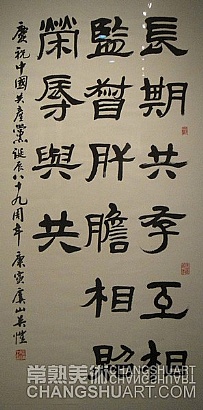 長期共存互相
監督肝膽相照
榮辱與共
慶祝中國共產黨誕辰八十九周年 庚寅虞山吳愷
常熟美術 CHANGSHUART